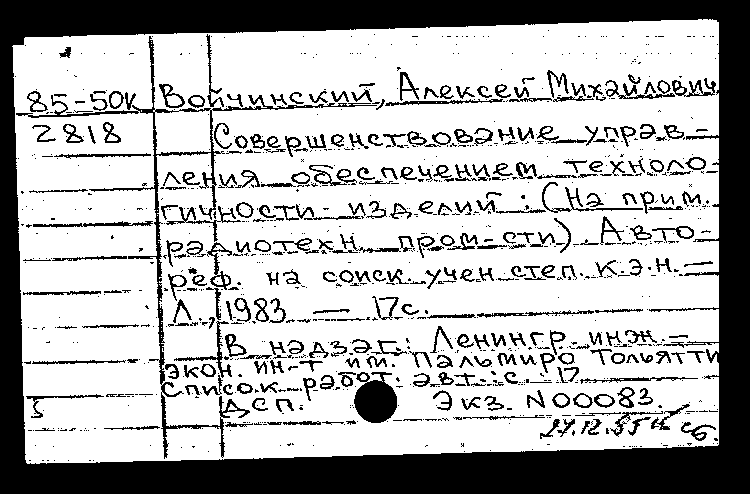 85-50К Войчинский, Алексей Михайлович
2818 Совершенствование управ-
ления обеспечением техноло-
гичности изделий: (На прим.
радиотехн. пром-сти). Авто-
реф. на соиск. учен. степ. к.э.н. —
Л., 1983 — 17с.
В надзаг.: Ленингр. инж.-
экон. ин-т им. Пальмиро Тольятти
Список работ. авт.: с. 17
ДСП. Экз. N00083.